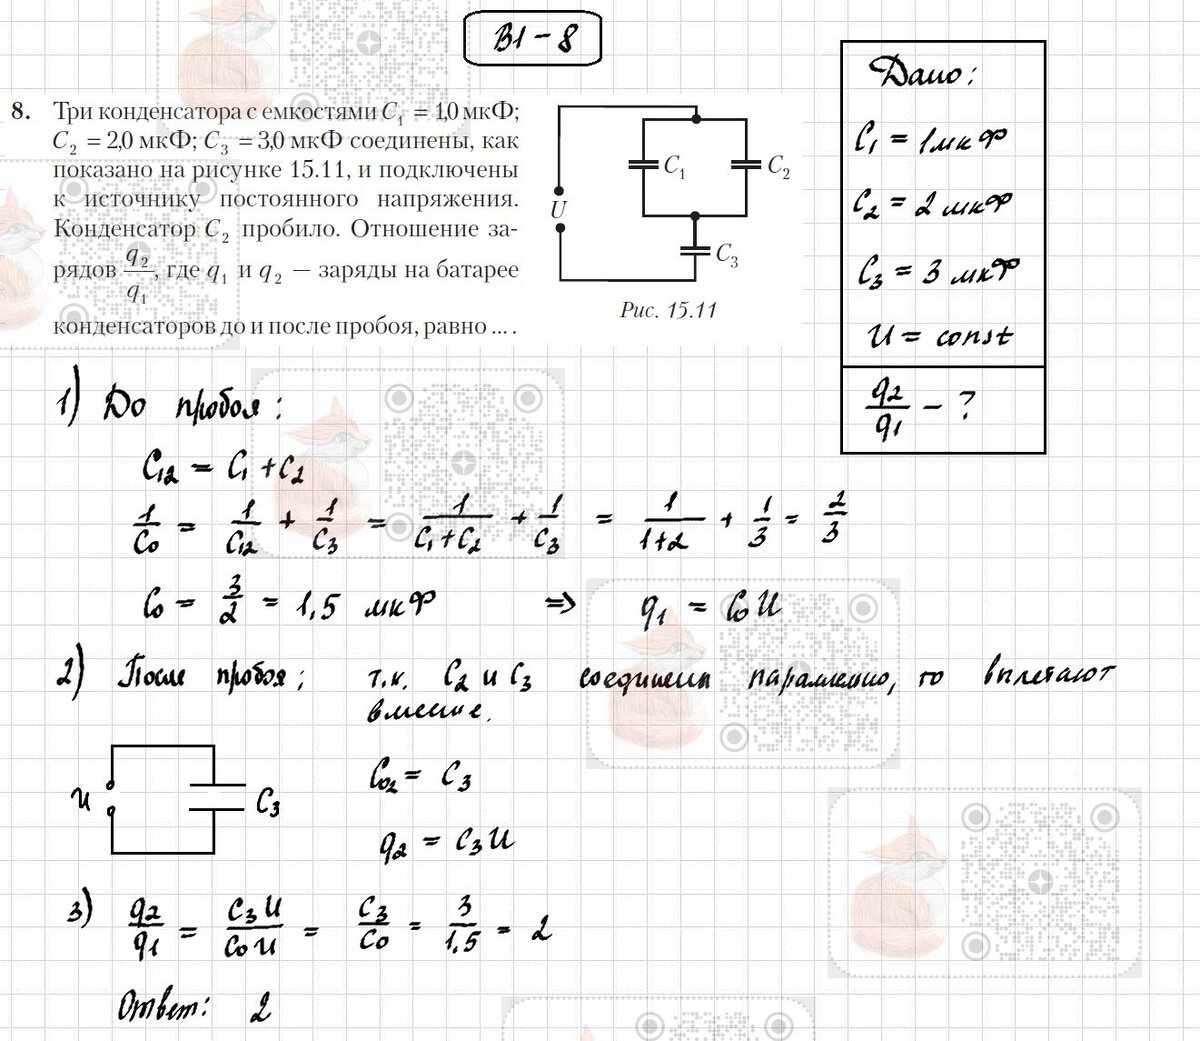 В1 – 8
8. Три конденсатора с емкостями C₁ = 1,0 мкФ;
C₂ = 2,0 мкФ; C₃ = 3,0 мкФ соединены, как
показано на рисунке 15.11, и подключены
к источнику постоянного напряжения.
Конденсатор C₂ пробило. Отношение за-
рядов q₂/q₁, где q₁ и q₂ — заряды на батарее
конденсаторов до и после пробоя, равно ... .
U
C₁
C₂
C₃
Рис. 15.11
Дано:
C₁ = 1 мкФ
C₂ = 2 мкФ
C₃ = 3 мкФ
U = const
q₂/q₁ – ?
1) До пробоя:
C₁₂ = C₁ + C₂
1/C₀ = 1/C₁₂ + 1/C₃ = 1/(C₁+C₂) + 1/C₃ = 1/(1+2) + 1/3 = 2/3
C₀ = 3/2 = 1,5 мкФ ⇒ q₁ = C₀U
2) После пробоя; т.к. C₂ и C₃ соединены параллельно, то вылетают
вместе.
U
C₃
C₀₂ = C₃
q₂ = C₃U
3) q₂/q₁ = C₃U/C₀U = C₃/C₀ = 3/1,5 = 2
Ответ: 2